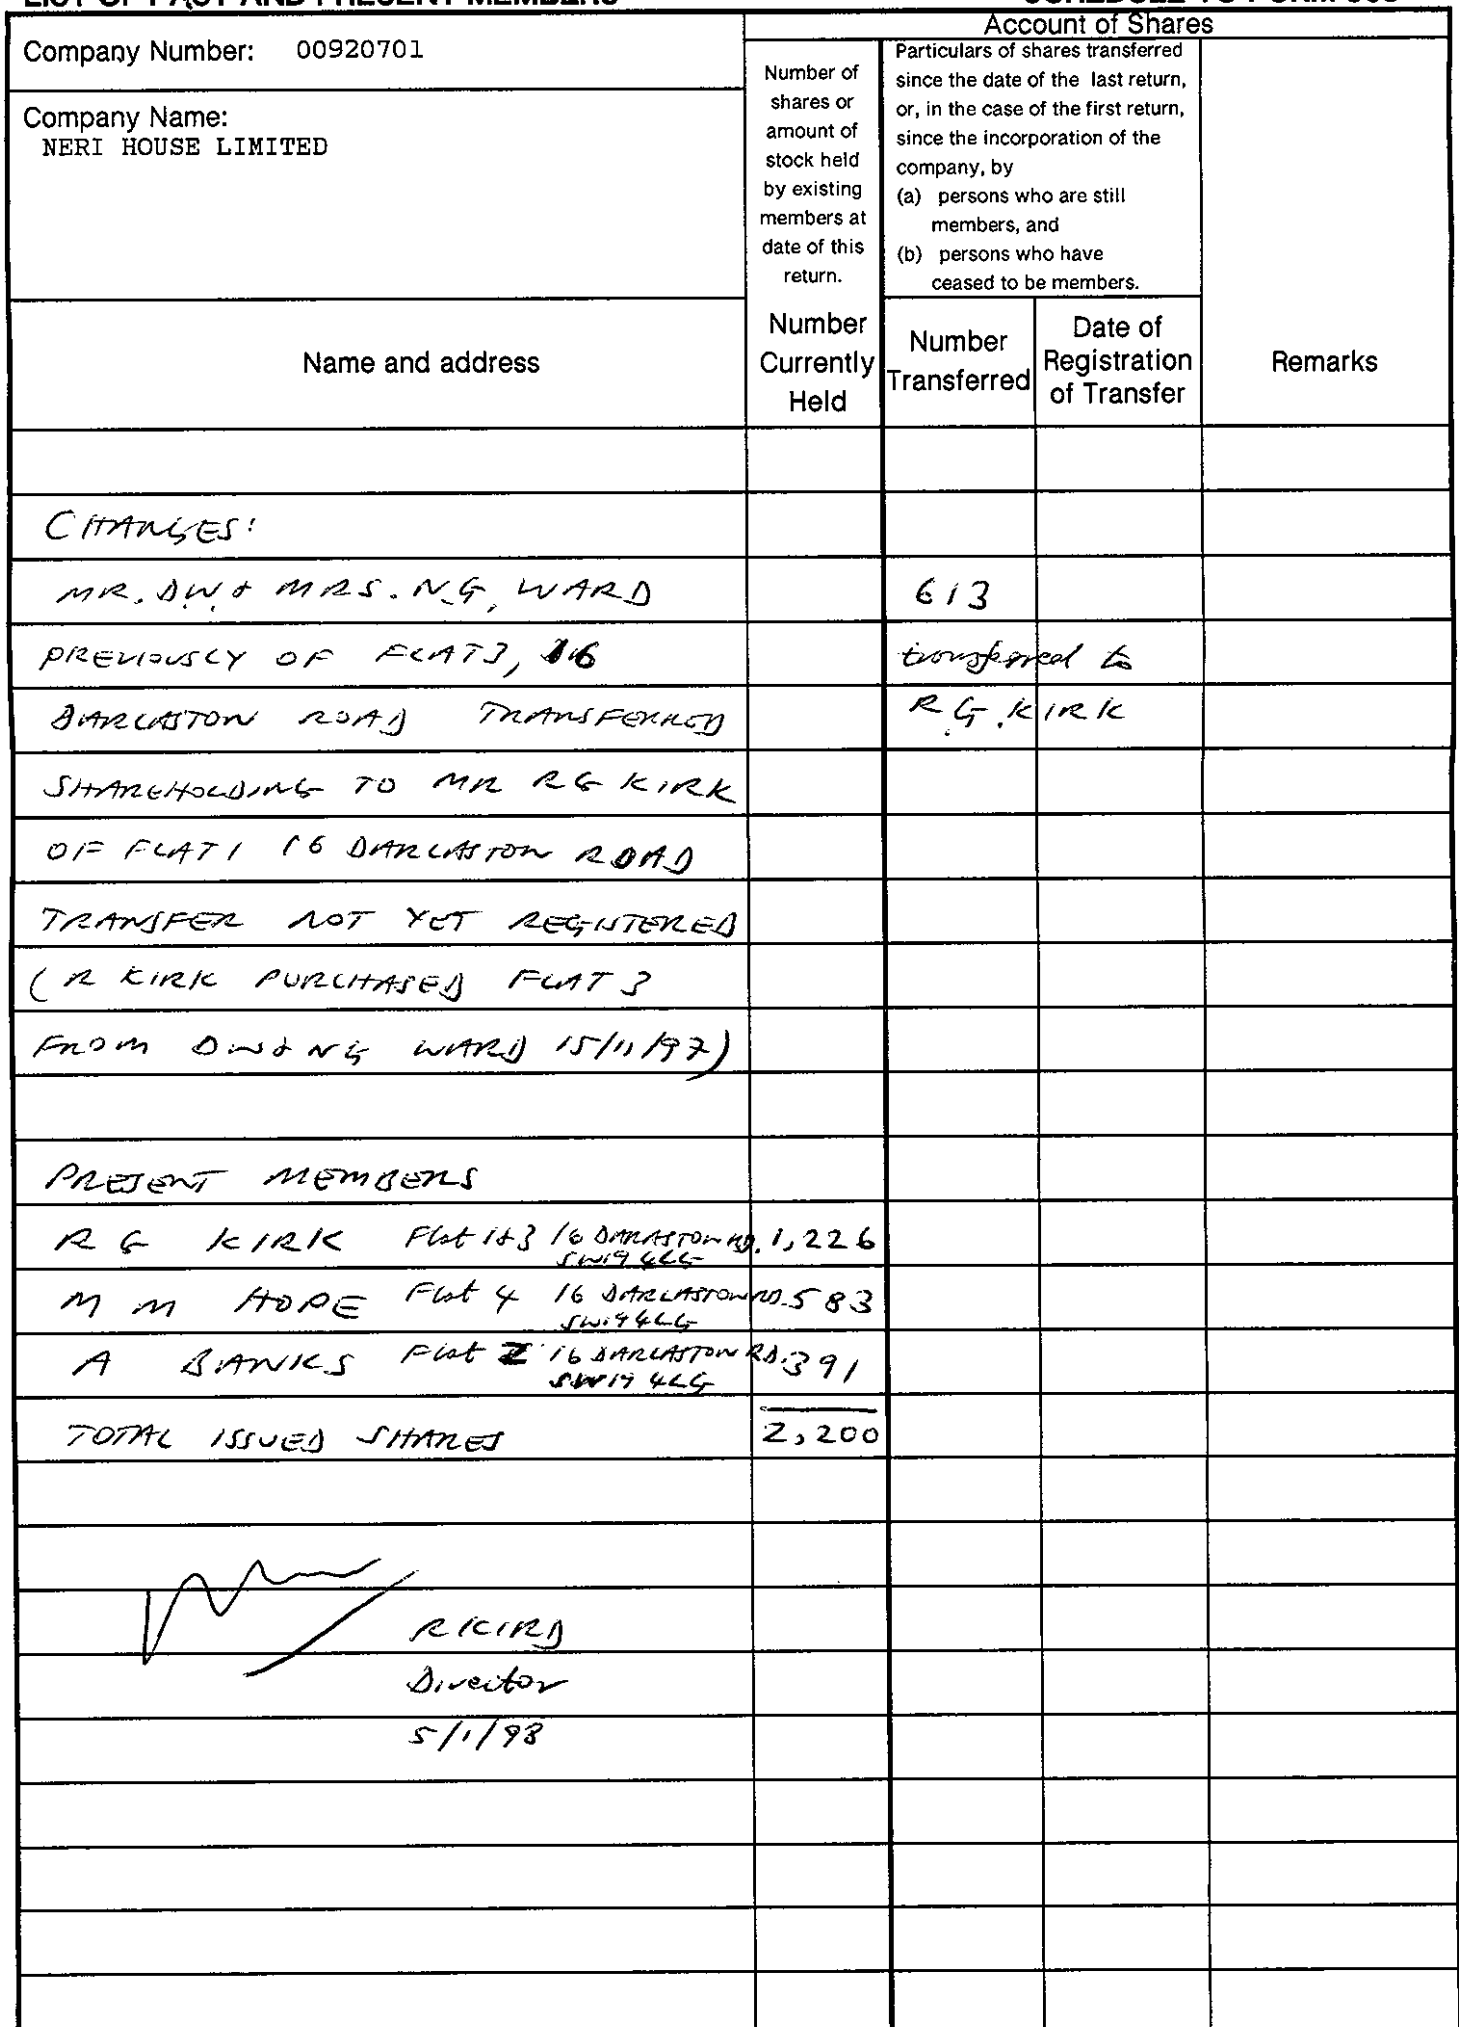 LIST OF PAST AND PRESENT MEMBERS
SCHEDULE TO FORM
Account of Shares
Company Number: 00920701
Company Name:
NERI HOUSE LIMITED
Number of
shares or
amount of
stock held
by existing
members at
date of this
return.
Particulars of shares transferred
since the date of the last return,
or, in the case of the first return,
since the incorporation of the
company, by
(a) persons who are still
members, and
(b) persons who have
ceased to be members.
Name and address
Number
Currently
Held
Number
Transferred
Date of
Registration
of Transfer
Remarks
CHANGES:
MR. D.W. & MRS. N.G. WARD 613
PREVIOUSLY OF FLAT 3, 16 transferred to
DARLASTON ROAD TRANSFERRED R.G. KIRK
SHAREHOLDING TO MR RG KIRK
OF FLAT 1 16 DARLASTON ROAD
TRANSFER NOT YET REGISTERED
(R KIRK PURCHASED FLAT 3
FROM DW & NG WARD 15/11/97)
PRESENT MEMBERS
R G KIRK Flat 1&3 16 DARLASTON RD. 1,226
SW19 4LG
M M HOPE Flat 4 16 DARLASTON RD. 583
SW19 4LG
A BANKS Flat 2 16 DARLASTON RD. 391
SW19 4LG
TOTAL ISSUED SHARES 2,200
R KIRK
Director
5/1/98